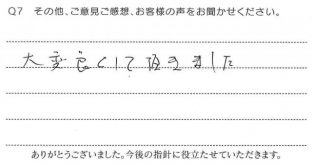 Q7 その他、ご意見ご感想、お客様の声をお聞かせください。
大変良くして頂きました
ありがとうございました。今後の指針に役立たせていただきます。